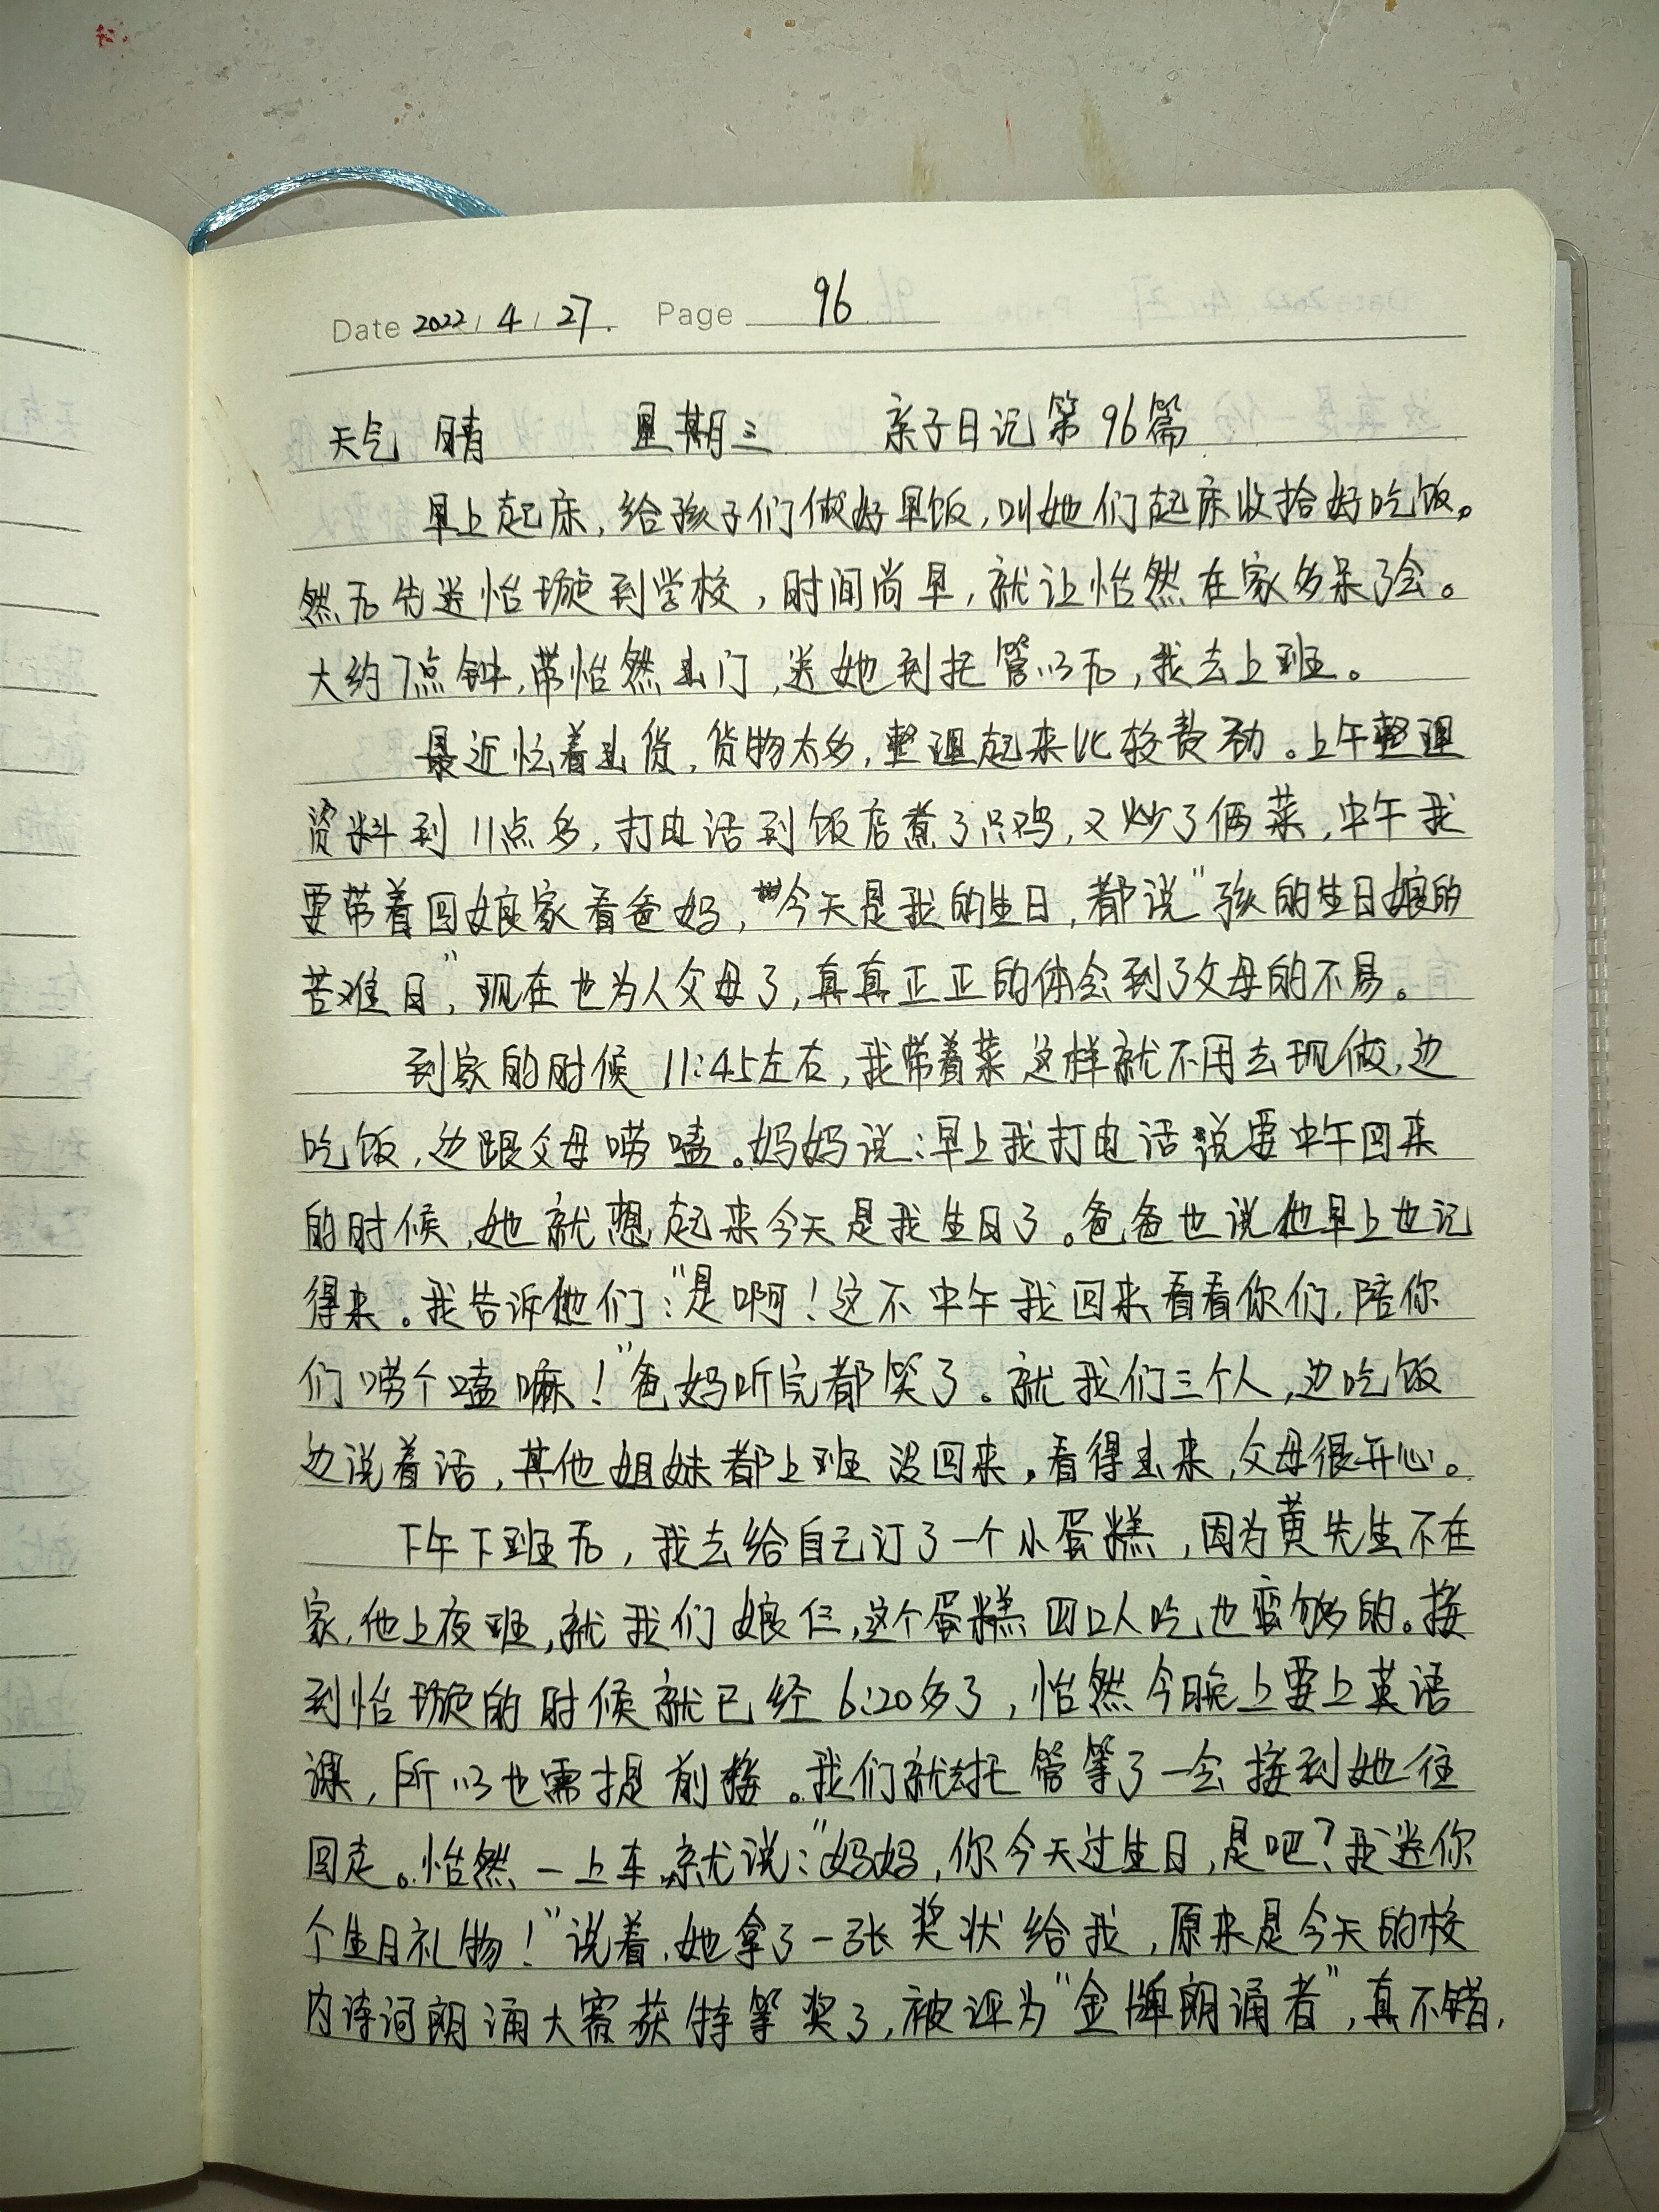 Date 2022 / 4 / 27. Page 96
天气 晴 星期三 亲子日记第96篇
早上起床,给孩子们做好早饭,叫她们起床收拾好吃饭。
然后先送怡璇到学校,时间尚早,就让怡然在家多呆了会。
大约7点钟,带怡然出门,送她到托管以后,我去上班。
最近忙着出货,货物太多,整理起来比较费劲。上午整理
资料到11点多,打电话到饭店煮了只鸡,又炒了俩菜,中午我
要带着回娘家看爸妈,今天是我的生日,都说"孩的生日娘的
苦难日",现在也为人父母了,真真正正的体会到了父母的不易。
到家的时候11:45左右,我带着菜这样就不用去现做,边
吃饭,边跟父母唠嗑。妈妈说:早上我打电话说要中午回来
的时候,她就想起来今天是我生日了。爸爸也说他早上也记
得来。我告诉他们:"是啊!这不中午我回来看看你们,陪你
们唠个嗑嘛!"爸妈听完都笑了。就我们三个人,边吃饭
边说着话,其他姐妹都上班没回来,看得出来,父母很开心。
下午下班后,我去给自己订了一个小蛋糕,因为黄先生不在
家,他上夜班,就我们娘仨,这个蛋糕四口人吃也蛮够的。接
到怡璇的时候就已经6:20多了,怡然今晚上要上英语
课,所以也需提前接。我们就去托管等了一会接到她往
回走。怡然一上车,就说:"妈妈,你今天过生日,是吧?我送你
个生日礼物!"说着,她拿了一张奖状给我,原来是今天的校
内诗词朗诵大赛获特等奖了,被评为"金牌朗诵者",真不错,